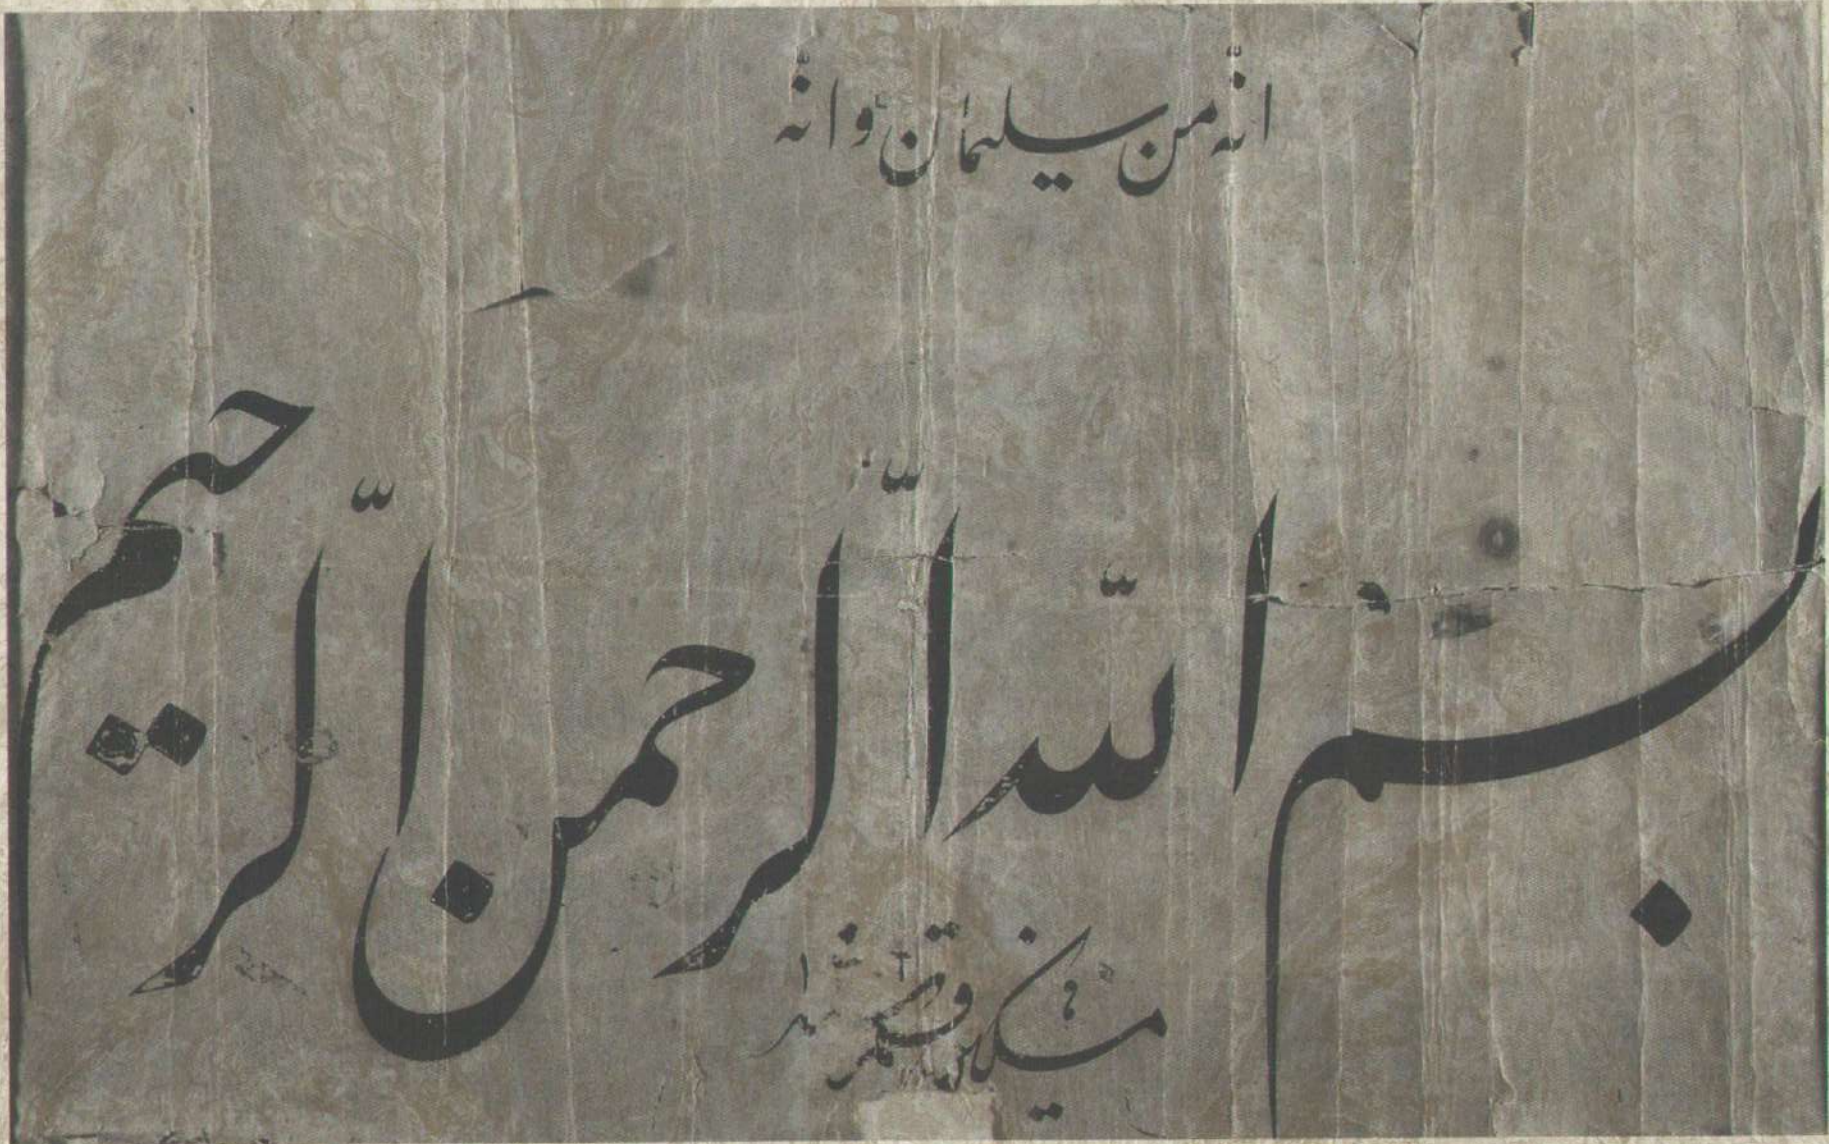 انّه من سلیمان وانّه
بسم اللّه الّرحمن الّرحیم
مشکین قلم